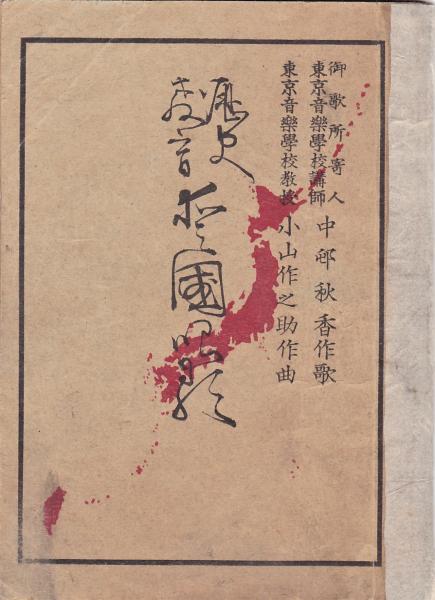 御歌所寄人
東京音樂學校講師 中邨秋香作歌
東京音樂學校教授 小山作之助作曲
歷史
教育
國唱歌